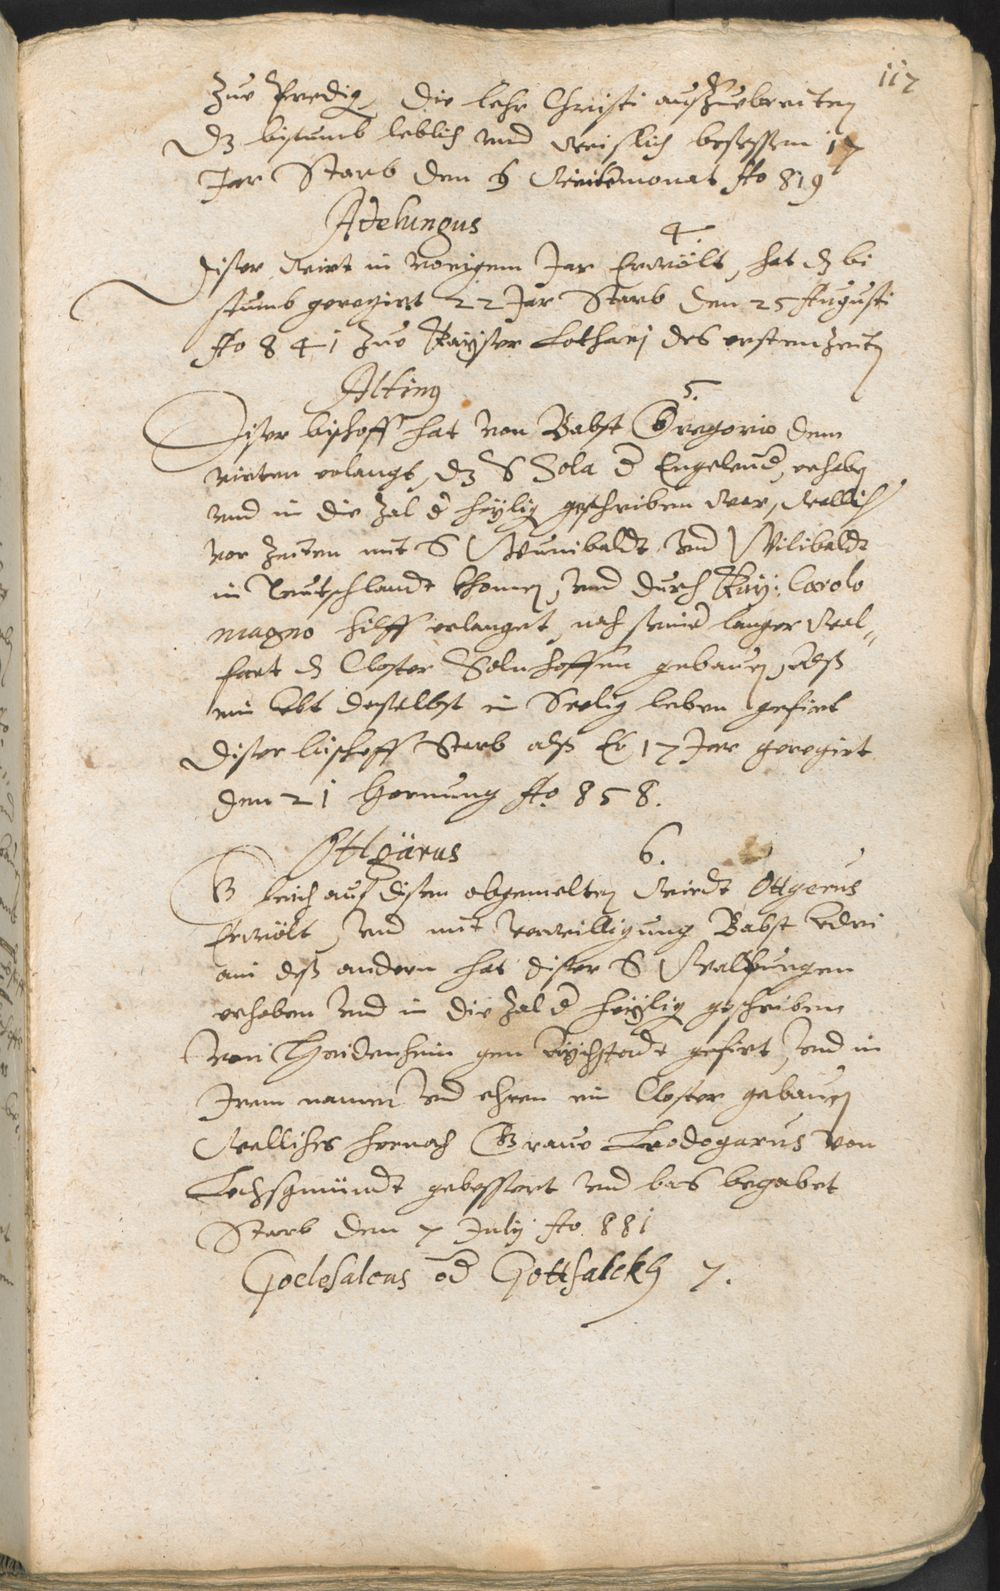 117
Zue Predig, die lehr Christi auszuebreiten
Dz bistumb loblich vnd Weislich besessen 17
Jar Starb den 6 Weinmonat Ao 819
Adelungus 4.
Diser Wirt in vorigem Jar Erwölt, hat dz bi
stumb geregirt 22 Jar Starb den 25 Augusti
Ao 841 Zue Kayser Lotharj des ersten Zeitn
Alting 5.
Diser bischoff hat von Babst Gregorio dem
vierten erlangt, dz S Sola d Engelend, erhabn
vnd in die Zal d heylig geschriben War, Wellich
vor Zeiten mit S Wunibaldt vnd Wilibaldt
in Teutschlandt khomen, vnd durch Kay: Carolo
magno hilff erlanget, nach seiner langer Wal-
fart dz Closter Solnhoffen gebauen, Alß
ein Abt daselbst in Seelig leben gefirt
Diser bischoff Starb alß Er 17 Jar geregirt
den 21 Hornung Ao. 858.
Ottgärus 6.
Gleich auf disen obgemelten Wirdt Ottgerus
Erwölt, vnd mit verwilligung Babst Adri
ani deß andern hat diser S Walpurgen
erhaben vnd in die Zal d heylig geschriben
Von Haidenheim gen Aychstadt gefirt, vnd in
Irem namen vnd ehren ein Closter gebauen
Welliches hernach Graue Leodegarus von
Lechsgmündt gebessert vnd bas begabet
Starb den 7 July Ao. 881
Goelesalcus od Gottsalckh 7.